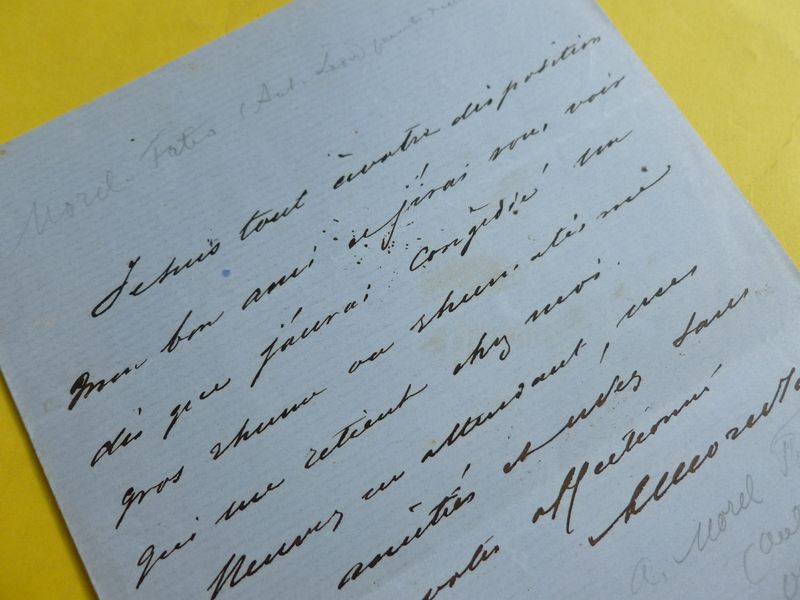 Morel Fatio (Ant. Léon) peintre
Je suis tout à votre disposition
mon bon ami et j'irai vous voir
dès que j'aurai congédié un
gros rhume ou rhumatisme
qui me retient chez moi.
Recevez en attendant, mes
amitiés et
votre affectionné
A. Morel